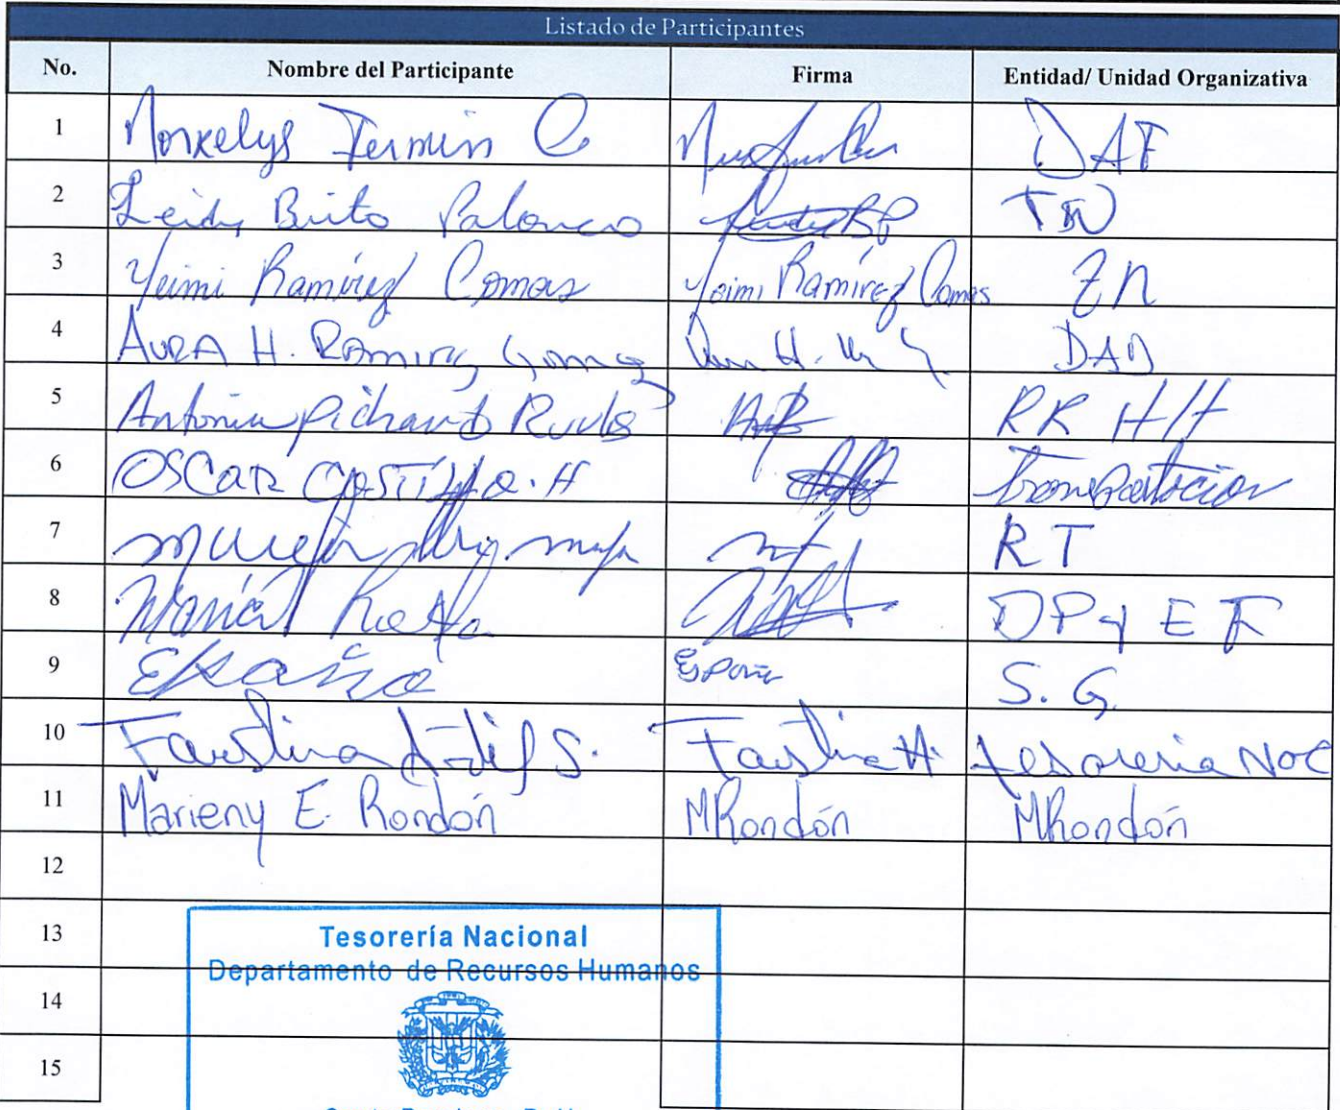 Listado de Participantes
No. Nombre del Participante Firma Entidad/ Unidad Organizativa
1 Norkelys Fermin C DAF
2 Leidy Brito Polanco TN
3 Yeimi Ramírez Comas Yeimi Ramírez Comas TN
4 AURA H. Ramirez Gomez DAD
5 Antonia Pichardo RR HH
6 OSCAR CASTILLO. H Transportacion
7 RT
8 DPyEF
9 España España S.G.
10 Faustina S. Faustina H. Tesoreria Nac
11 Marieny E. Rondón MRondón MRondón
12
13
Tesorería Nacional
Departamento de Recursos Humanos
14
15